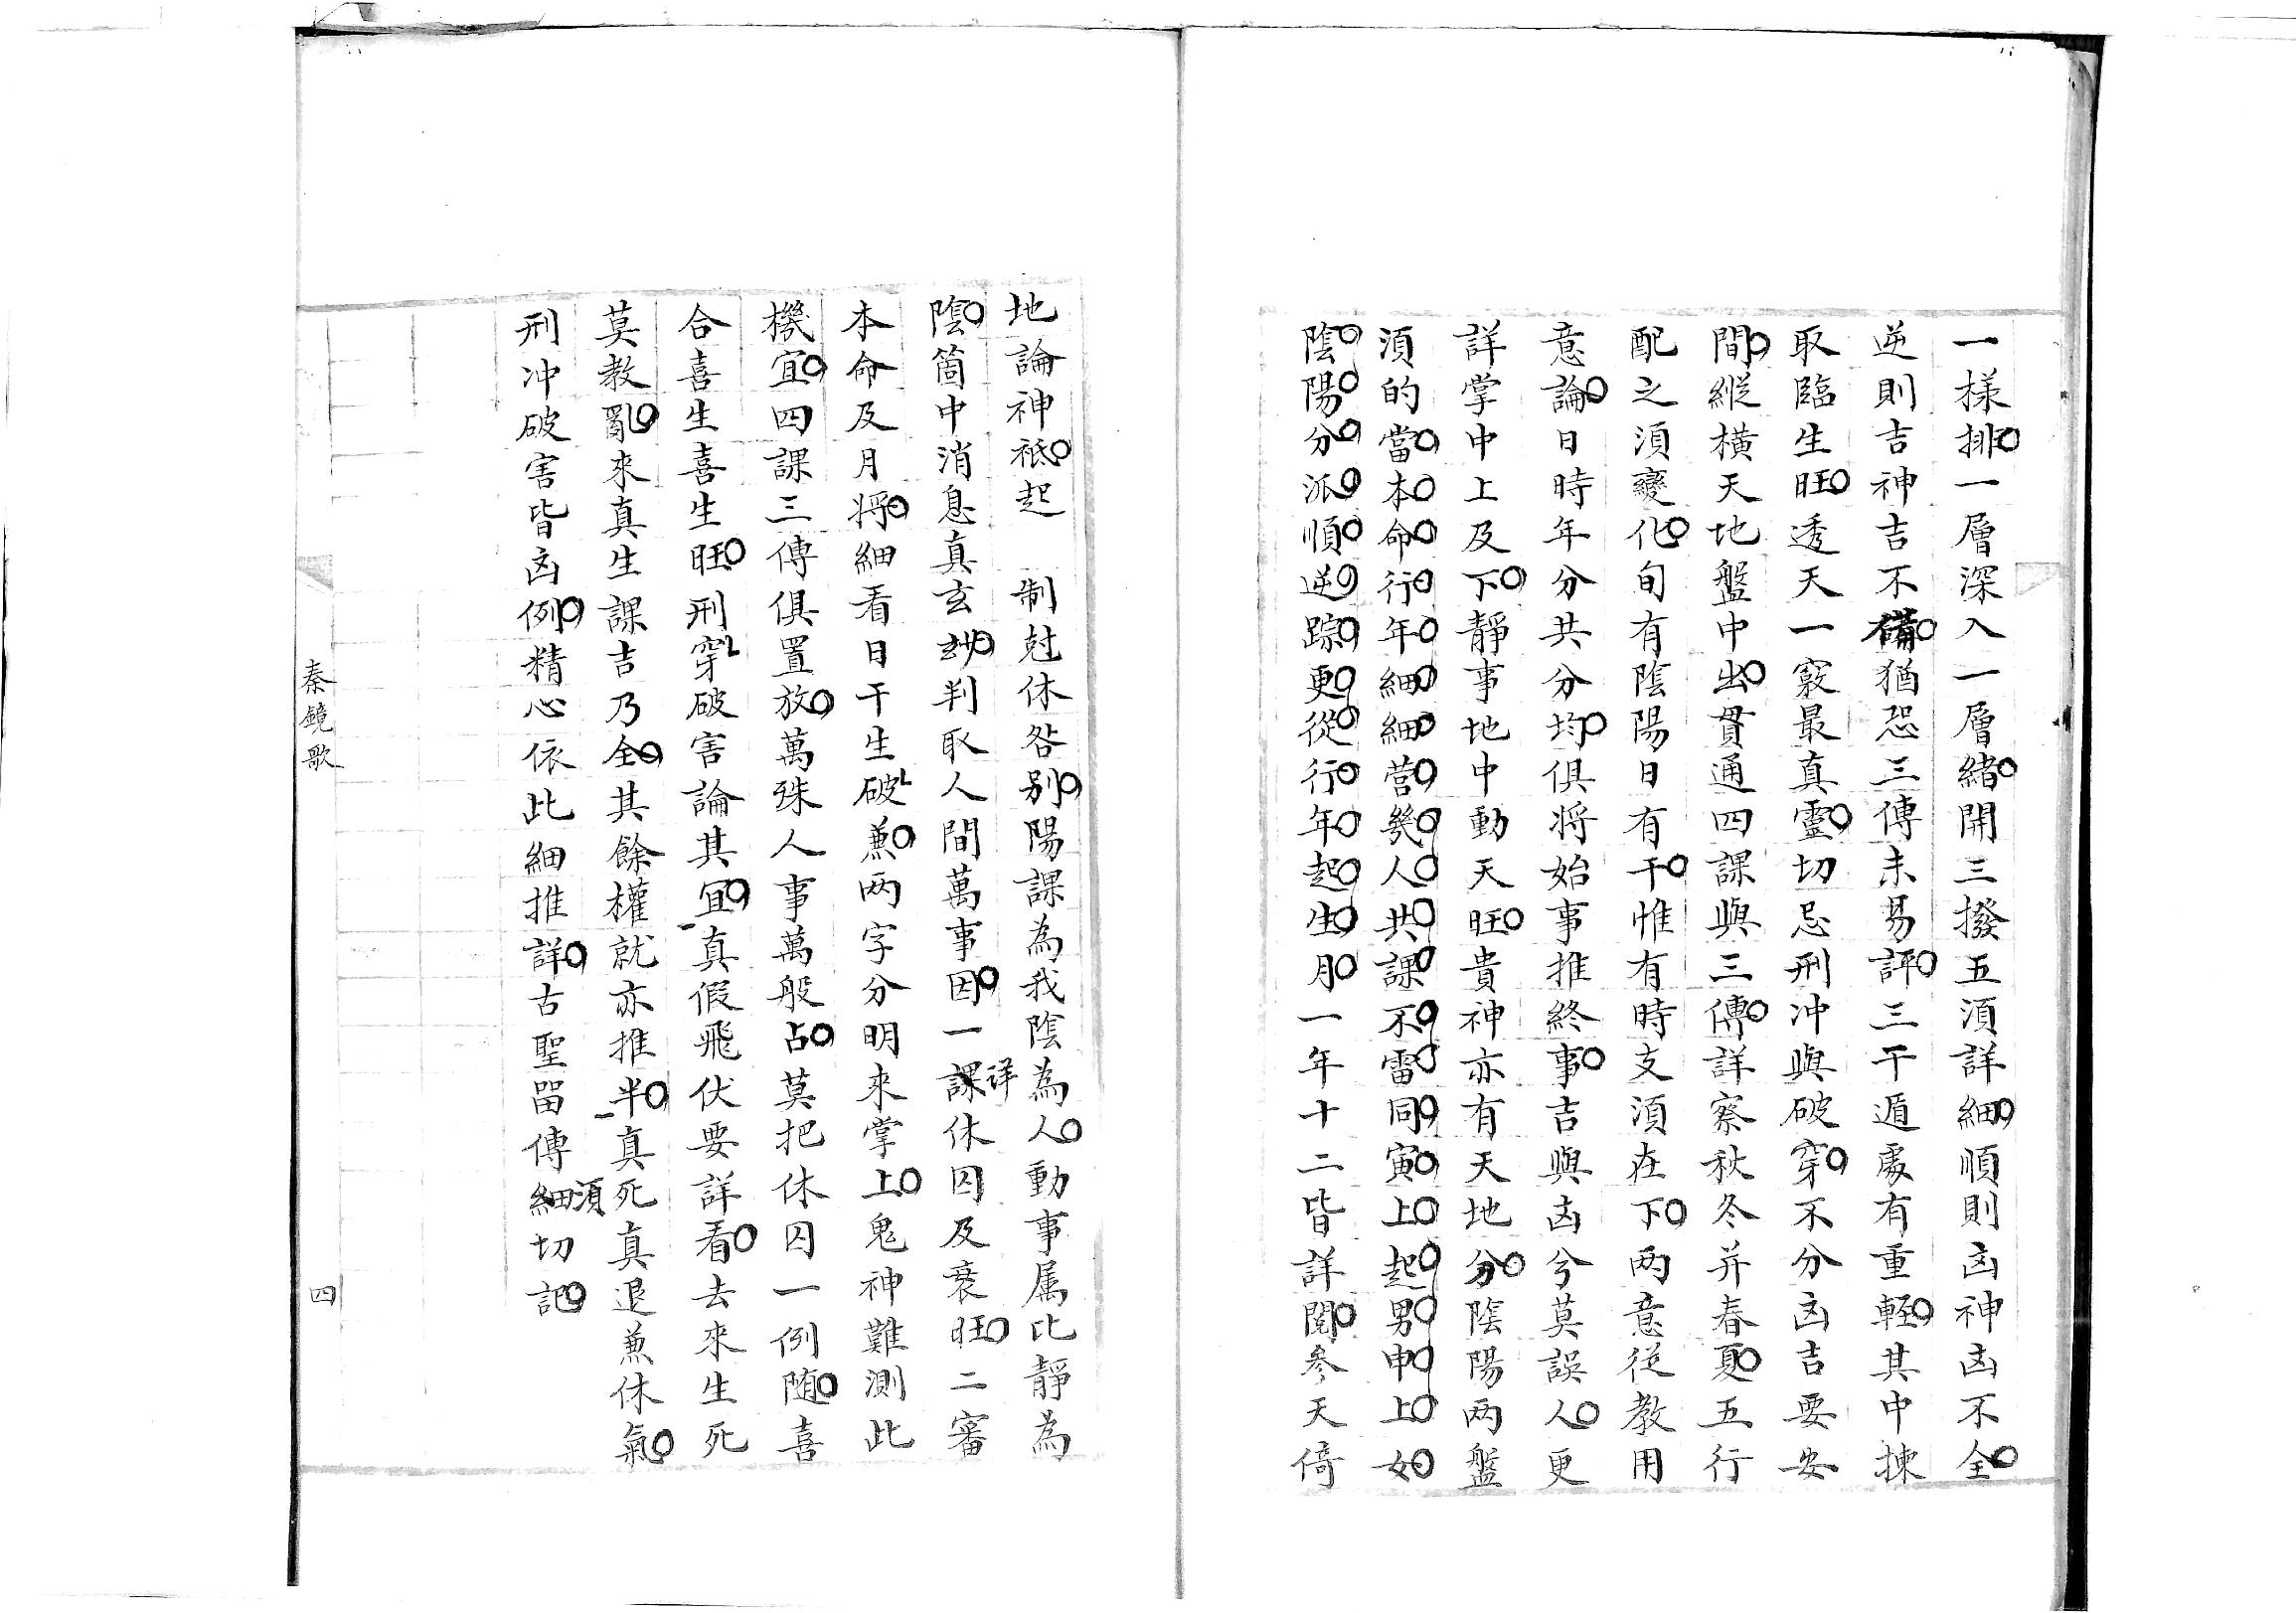 一樣排一層深入一層緒開三撥五須詳細順則凶神凶不全
逆則吉神吉不備猶恐三傳未易評三干遁處有重輕其中揀
取臨生旺透天一竅最真靈切忌刑冲與破穿不分凶吉要安
間縱橫天地盤中出貫通四課與三傳詳察秋冬并春夏五行
配之須變化旬有陰陽日有干惟有時支須在下两意從教用
意論日時年分共分均俱将始事推終事吉與凶兮莫誤人更
詳掌中上及下靜事地中動天旺貴神亦有天地分陰陽两盤
須的當本命行年細細营幾人共課不雷同寅上起男申上女
陰陽分派順逆踪更從行年起生月一年十二皆詳閱參天倚
地論神祗起　制尅休咎別陽課為我陰為人動事属比靜為
陰箇中消息真玄玅判取人間萬事因一課詳休囚及衰旺二審
本命及月将細看日干生破兼两字分明來掌上鬼神難測此
機宜四課三傳俱置放萬殊人事萬般占莫把休囚一例随喜
合喜生喜生旺刑穿破害論其宜真假飛伏要詳看去來生死
莫教亂來真生課吉乃全其餘權就亦推半真死真退兼休氣
刑冲破害皆凶例精心依此細推詳古聖畱傳細須切記
秦鏡歌
四